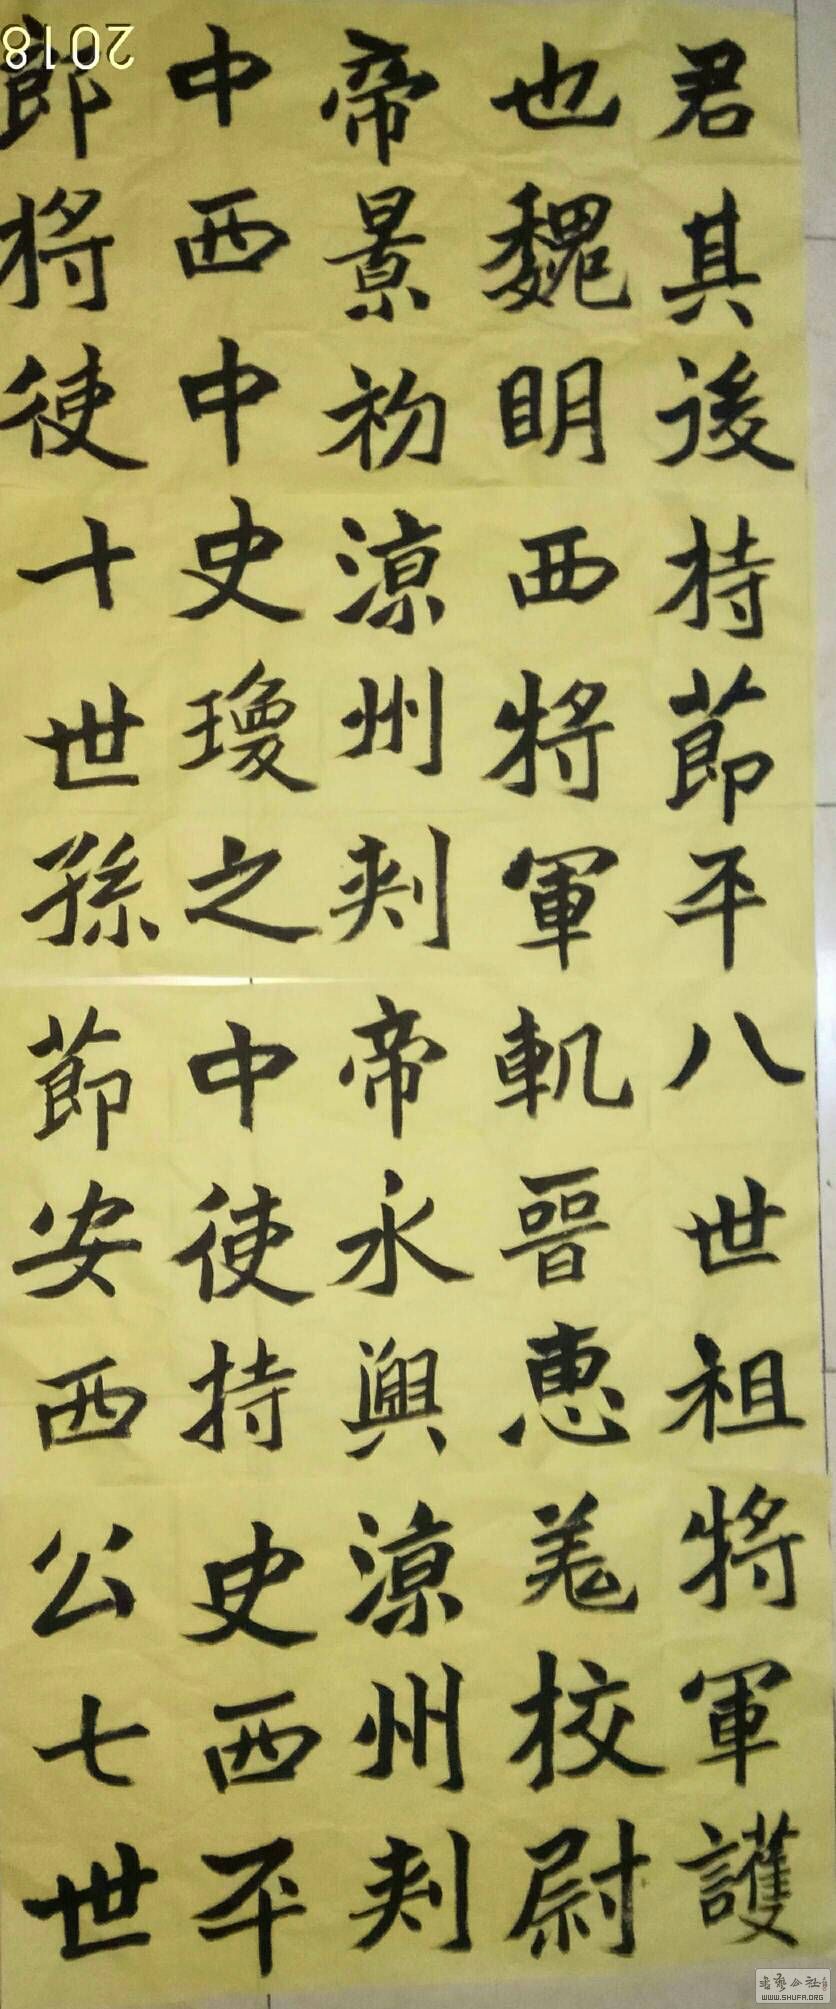 君其後持節平八世祖將軍護
也魏明西將軍軌晉惠羌校尉
帝景初涼州刾帝永興涼州刾
中西中史瓊之中使持史西平
節將使十世孫節安西公七世
2018
書藝公社
WWW.SHUFA.ORG